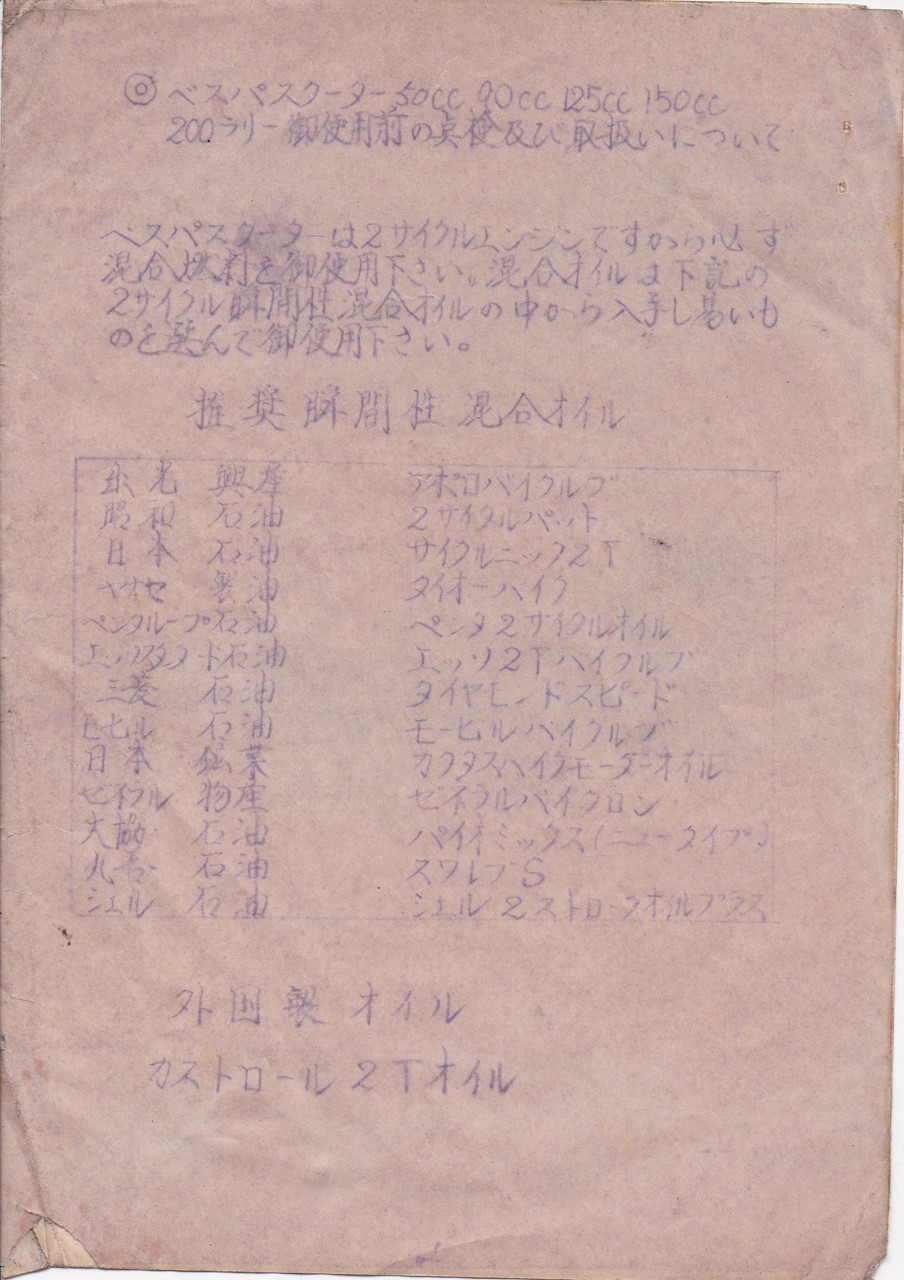 ◎ ベスパスクーター 50cc 90cc 125cc 150cc
200ラリー 御使用前の点検及び取扱いについて
ベスパスクーターは2サイクルエンジンですから必ず
混合燃料を御使用下さい。混合オイルは下記の
2サイクル瞬間性混合オイルの中から入手し易いも
のを選んで御使用下さい。
推奨瞬間性混合オイル
出光 興産 アポロバイクルブ
昭和 石油 2サイクルパット
日本 石油 サイクルニック2T
ヤナセ 製油 タイオーバイク
ペンタルーブ石油 ペンタ2サイクルオイル
エッソスタンダード石油 エッソ2Tバイクルブ
三菱 石油 ダイヤモンドスピード
モービル 石油 モービルバイクルブ
日本 鉱業 カクタスバイクモーターオイル
ゼネラル 物産 ゼネラルバイクロン
大協 石油 パイオミックス(ニュータイプ)
丸善 石油 スワルブS
シェル 石油 シェル2ストロークオイルプラス
外国製オイル
カストロール2Tオイル